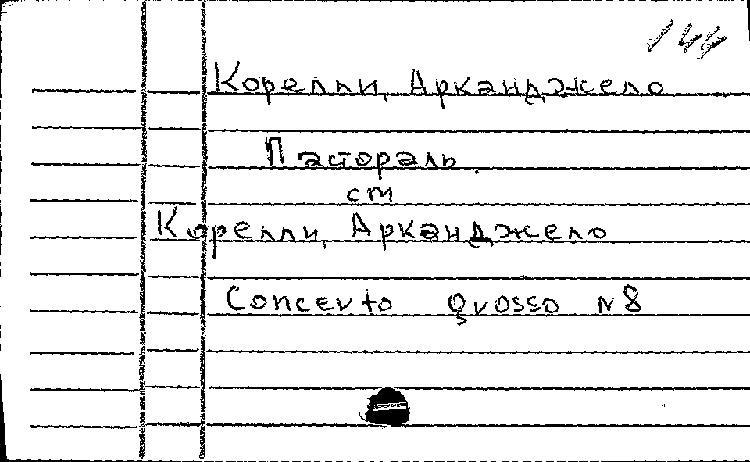 Корелли, Арканджело
Пастораль.
см
Корелли, Арканджело
Concerto grosso N8